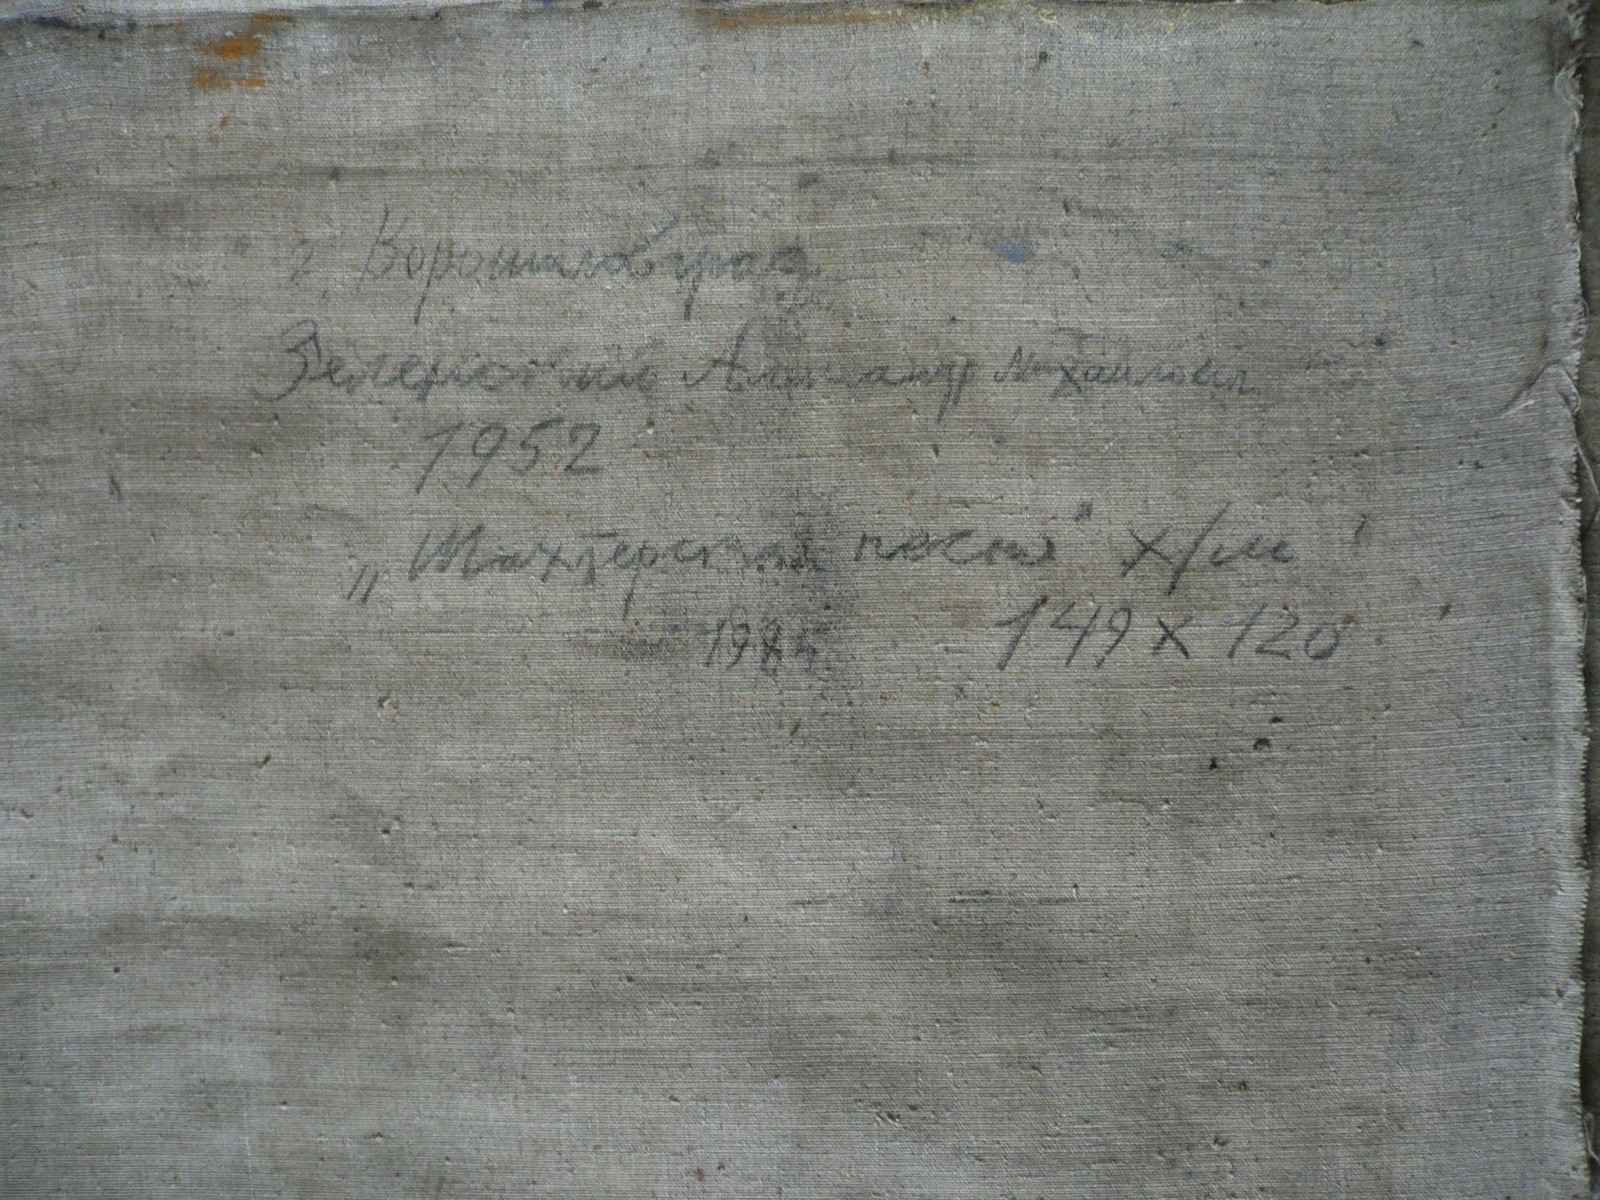 г. Ворошиловград
Александр Михайлович
1952
„Шахтерская песня" х/м
198 149 x 120